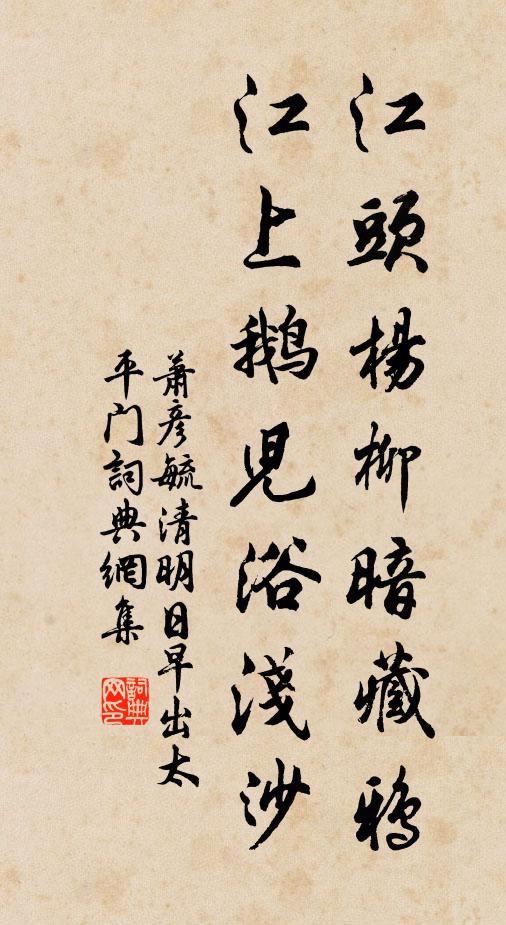 江頭楊柳暗藏鴉
江上鵝兒浴淺沙
蕭彥毓清明日早出太
平门詞典網集
詞典
网印